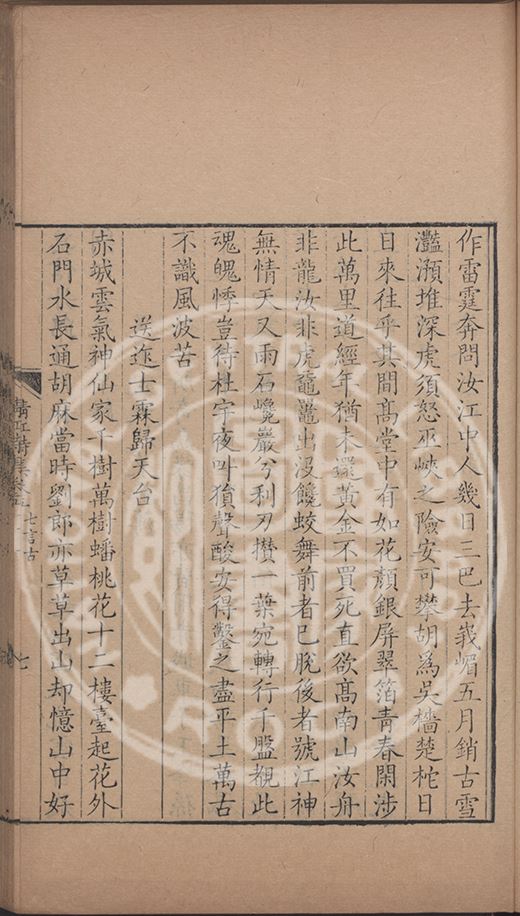 作雷霆奔問汝江中人幾日三巴去峩嵋五月銷古雪
灩澦堆深虎須怒巫峽之險安可攀胡爲吳檣楚柁日
日來往乎其間髙堂中有如花顏銀屏翠箔青春閑涉
此萬里道經年猶未還黃金不買死直欲髙南山汝舟
非龍汝非虎黿鼉出沒饞蛟舞前者已脫後者號江神
無情天又雨石巉巖兮利刃攢一葉宛轉行千盤覩此
魂魄悸豈待杜宇夜叫猿聲酸安得鑿之盡平土萬古
不識風波苦
送迮士霖歸天台
赤城雲氣神仙家千樹萬樹蟠桃花十二樓臺起花外
石門水長通胡麻當時劉郎亦草草出山却憶山中好
七言古
七